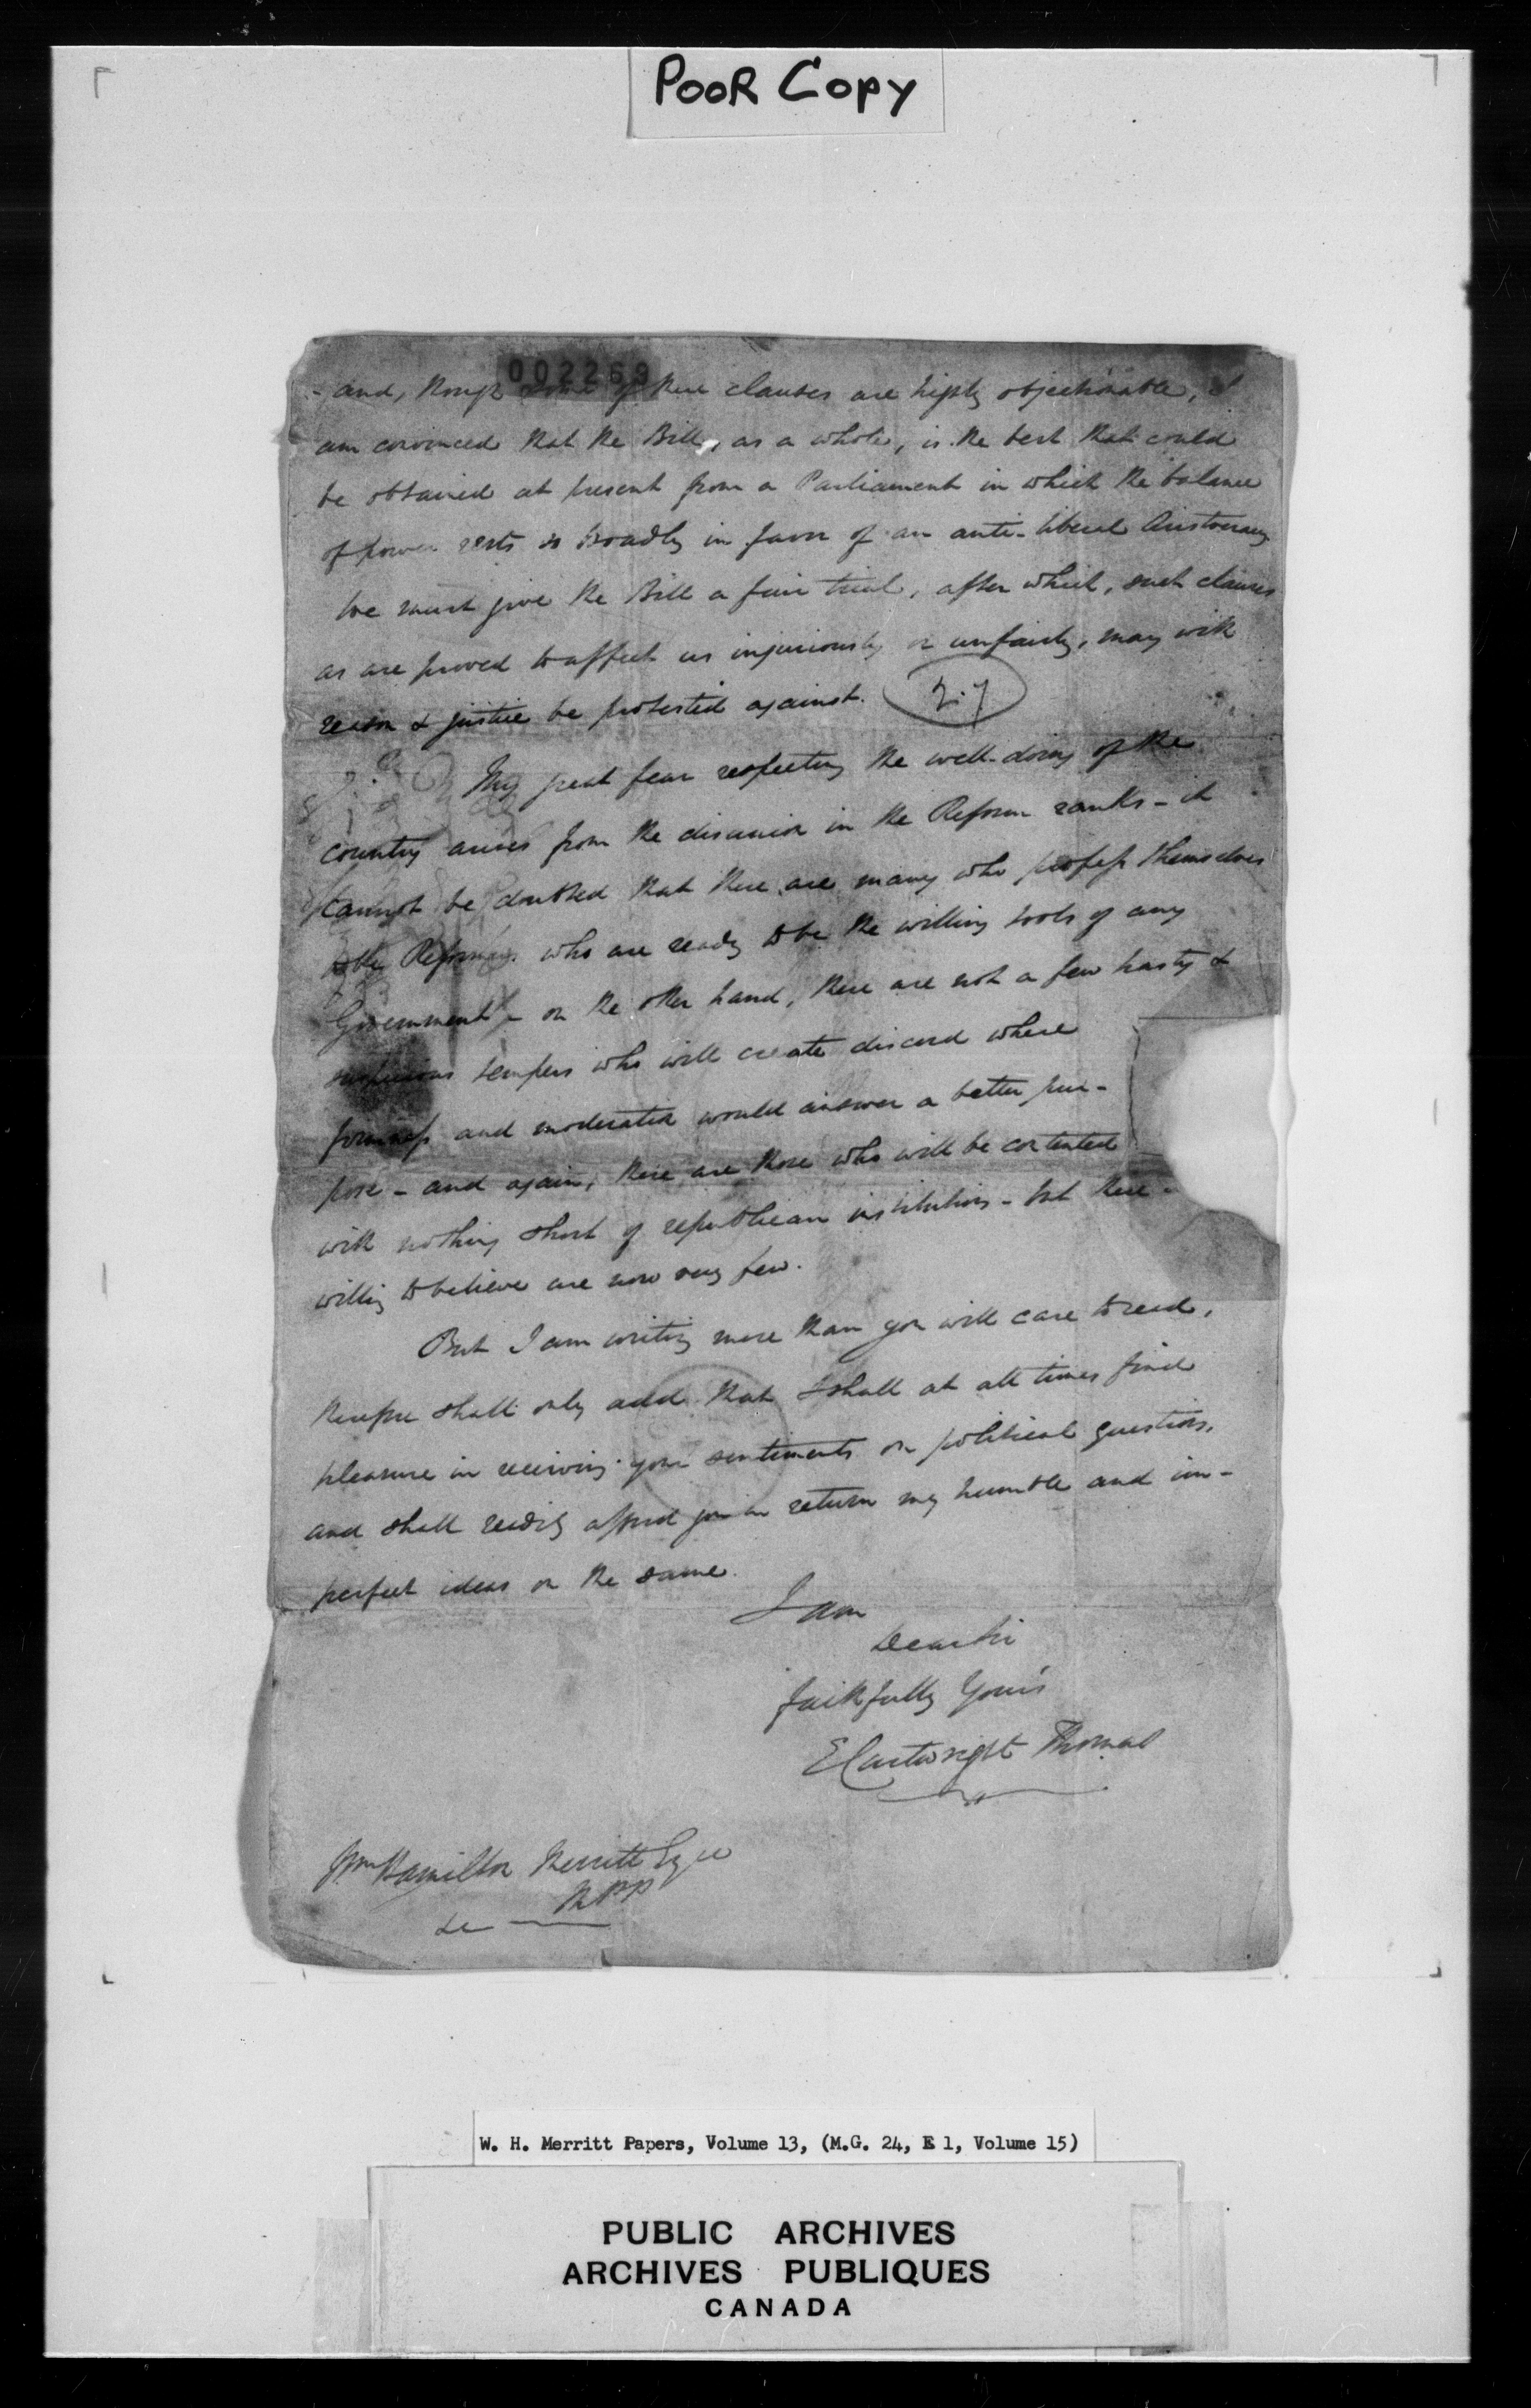 POOR COPY
002269
- and, though some of these clauses are highly objectionable, I
am convinced that the Bill, as a whole, is the best that could
be obtained at present from a Parliament in which the balance
of power rests so broadly in favor of an anti-liberal Aristocracy
We must give the Bill a fair trial, after which, such clauses
as are proved to affect us injuriously or unfairly, may with
reason & justice be protested against.
My great fear respecting the well-doing of the
country arises from the disunion in the Reform ranks - it
cannot be doubted that there are many who profess themselves
to be Reformers who are ready to be the willing tools of any
Government - on the other hand, there are not a few hasty &
suspicious tempers who will create discord where
firmness and moderation would answer a better pur-
pose - and again, there are those who will be contented
with nothing short of republican institutions - but these
willing to believe are now very few.
But I am writing more than you will care to read,
therefore shall only add that I shall at all times find
pleasure in receiving your sentiments on political questions,
and shall readily afford you in return my humble and im-
perfect ideas on the same.
I am
Dear Sir
faithfully Your's
E Cartwright Thomas
Wm Hamilton Merritt Esqre
MPP
&c
W. H. Merritt Papers, Volume 13, (M.G. 24, E 1, Volume 15)
PUBLIC ARCHIVES
ARCHIVES PUBLIQUES
CANADA